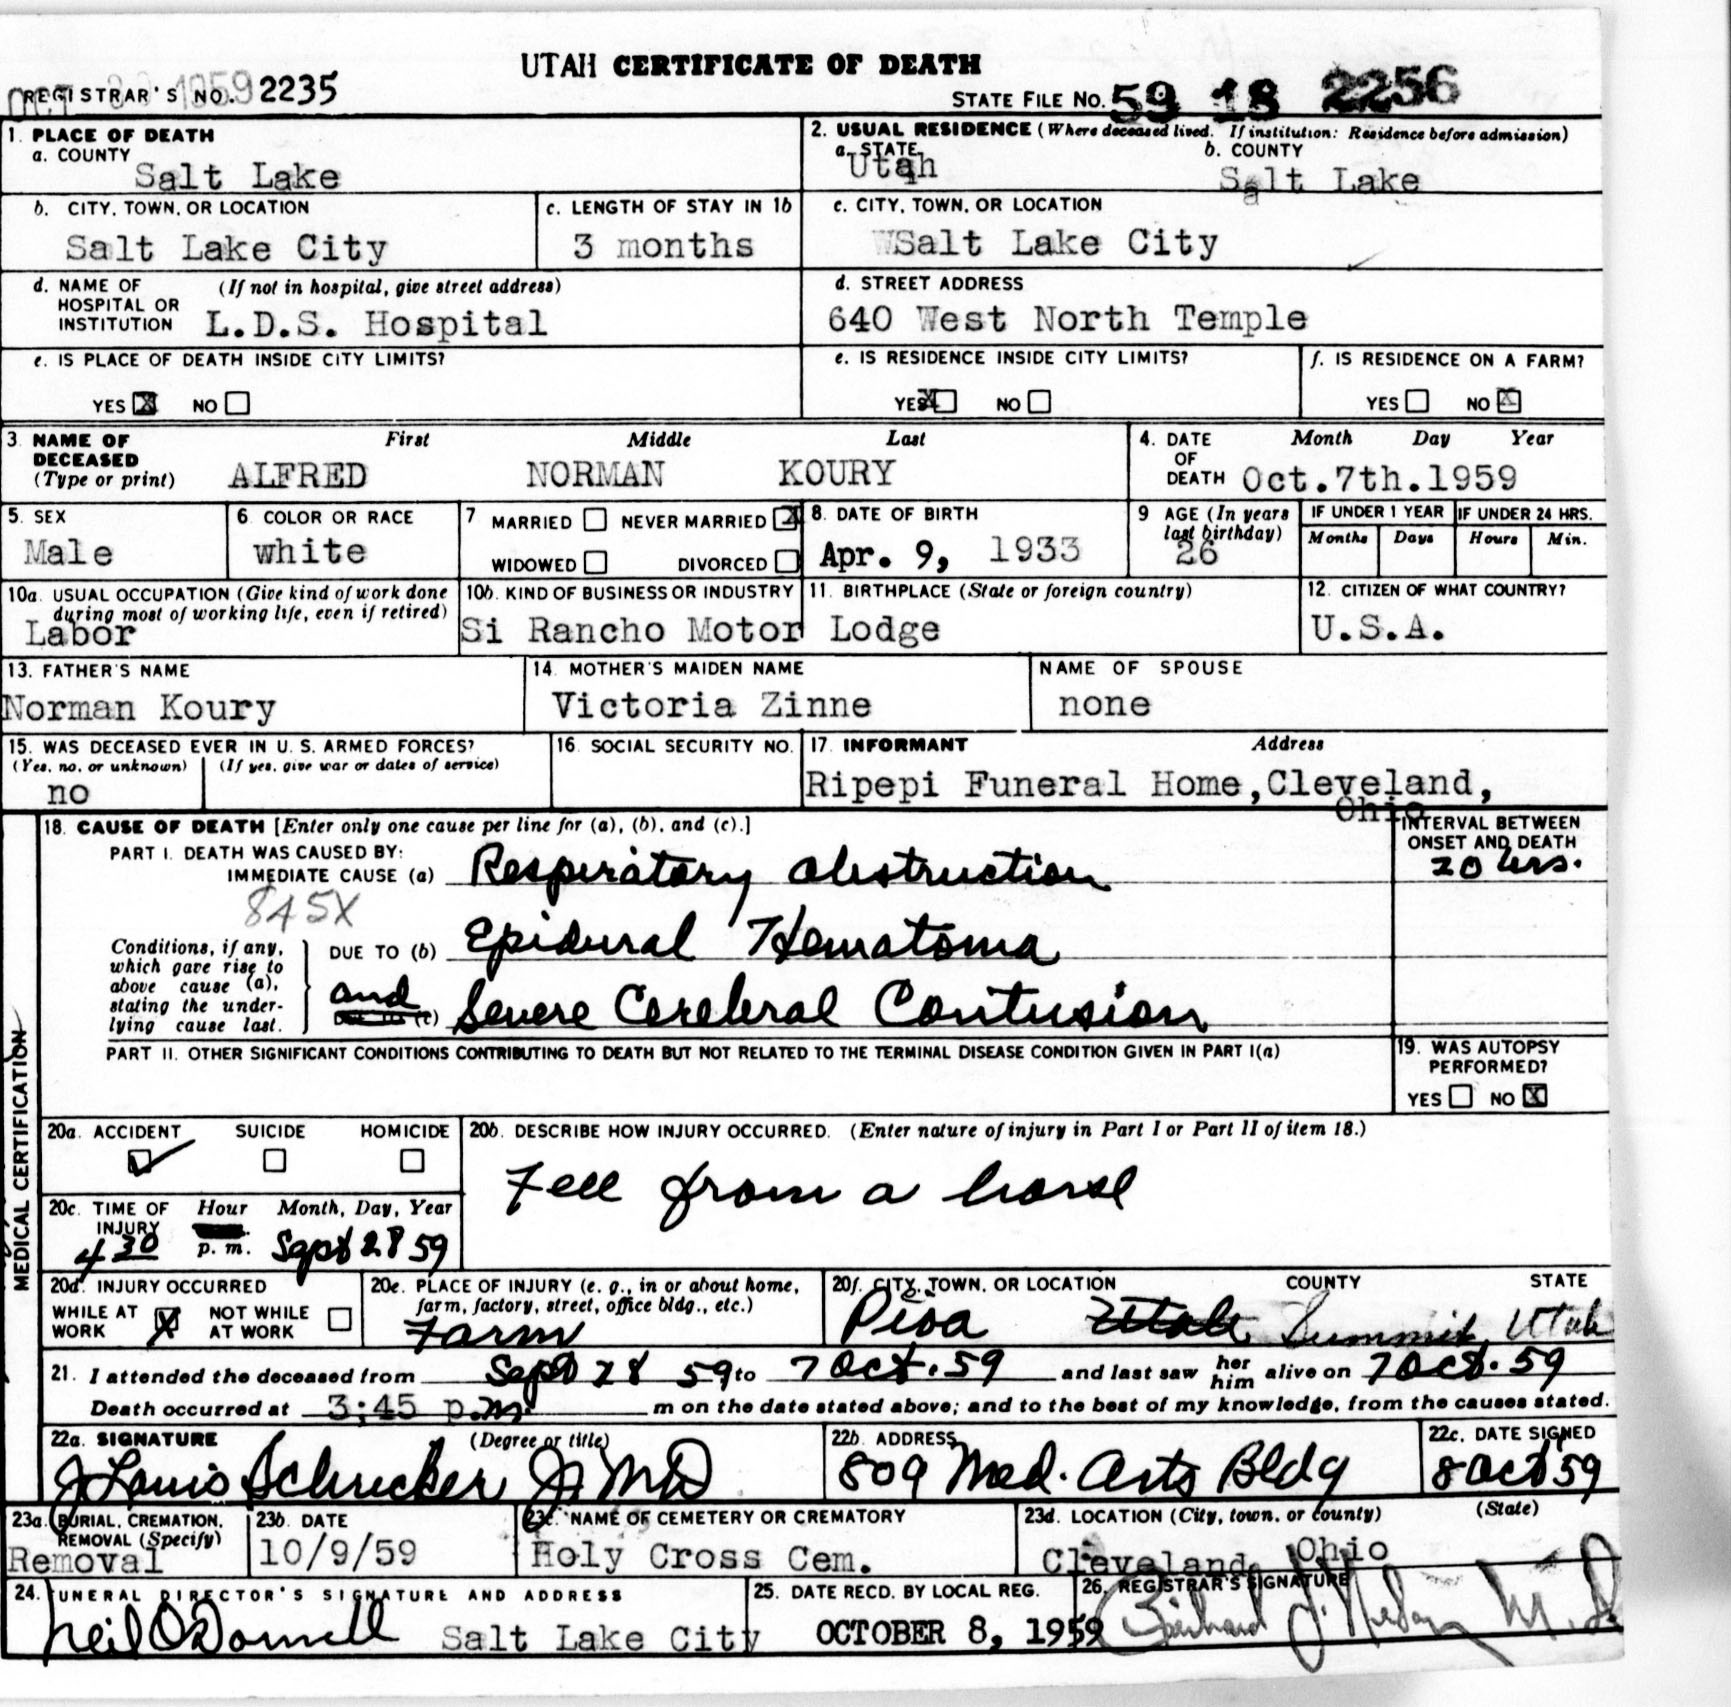 UTAH CERTIFICATE OF DEATH
REGISTRAR'S NO. 2235
STATE FILE NO. 59 18 2256
1. PLACE OF DEATH
a. COUNTY
Salt Lake
2. USUAL RESIDENCE (Where deceased lived. If institution: Residence before admission)
a. STATE b. COUNTY
Utah Salt Lake
b. CITY, TOWN, OR LOCATION
Salt Lake City
c. LENGTH OF STAY IN 1b
3 months
c. CITY, TOWN, OR LOCATION
Salt Lake City
d. NAME OF HOSPITAL OR INSTITUTION (If not in hospital, give street address)
L.D.S. Hospital
d. STREET ADDRESS
640 West North Temple
e. IS PLACE OF DEATH INSIDE CITY LIMITS?
YES X NO
e. IS RESIDENCE INSIDE CITY LIMITS?
YES X NO
f. IS RESIDENCE ON A FARM?
YES NO X
3. NAME OF DECEASED (Type or print) First Middle Last
ALFRED NORMAN KOURY
4. DATE OF DEATH Month Day Year
Oct.7th.1959
5. SEX
Male
6. COLOR OR RACE
white
7 MARRIED NEVER MARRIED X
WIDOWED DIVORCED
8. DATE OF BIRTH
Apr. 9, 1933
9 AGE (In years last birthday)
26
IF UNDER 1 YEAR IF UNDER 24 HRS.
Months Days Hours Min.
10a. USUAL OCCUPATION (Give kind of work done during most of working life, even if retired)
Labor
10b. KIND OF BUSINESS OR INDUSTRY
Si Rancho Motor Lodge
11. BIRTHPLACE (State or foreign country)
12. CITIZEN OF WHAT COUNTRY?
U.S.A.
13. FATHER'S NAME
Norman Koury
14. MOTHER'S MAIDEN NAME
Victoria Zinne
NAME OF SPOUSE
none
15. WAS DECEASED EVER IN U. S. ARMED FORCES?
(Yes, no, or unknown) (If yes, give war or dates of service)
no
16. SOCIAL SECURITY NO.
17. INFORMANT Address
Ripepi Funeral Home,Cleveland,
Ohio
MEDICAL CERTIFICATION
18. CAUSE OF DEATH [Enter only one cause per line for (a), (b), and (c).]
PART I. DEATH WAS CAUSED BY:
IMMEDIATE CAUSE (a) Respiratory obstruction
INTERVAL BETWEEN ONSET AND DEATH
20 hrs.
845X
Conditions, if any, which gave rise to above cause (a), stating the underlying cause last.
DUE TO (b) Epidural Hematoma
and (c) Severe Cerebral Contusion
PART II. OTHER SIGNIFICANT CONDITIONS CONTRIBUTING TO DEATH BUT NOT RELATED TO THE TERMINAL DISEASE CONDITION GIVEN IN PART I(a)
19. WAS AUTOPSY PERFORMED?
YES NO X
20a. ACCIDENT SUICIDE HOMICIDE
20b. DESCRIBE HOW INJURY OCCURRED. (Enter nature of injury in Part I or Part II of item 18.)
Fell from a horse
20c. TIME OF INJURY Hour Month, Day, Year
4 30 p. m. Sept 28 59
20d. INJURY OCCURRED
WHILE AT WORK X NOT WHILE AT WORK
20e. PLACE OF INJURY (e. g., in or about home, farm, factory, street, office bldg., etc.)
Farm
20f. CITY, TOWN, OR LOCATION COUNTY STATE
Utah Summit, Utah
21. I attended the deceased from Sept 28 59 to 7 Oct. 59 and last saw her him alive on 7 Oct. 59
Death occurred at 3:45 p.m. m on the date stated above; and to the best of my knowledge, from the causes stated.
22a. SIGNATURE (Degree or title)
J Louis Schricker Jr MD
22b. ADDRESS
809 Med. Arts Bldg
22c. DATE SIGNED
8 Oct 59
23a. BURIAL, CREMATION, REMOVAL (Specify)
Removal
23b. DATE
10/9/59
23c. NAME OF CEMETERY OR CREMATORY
Holy Cross Cem.
23d. LOCATION (City, town, or county) (State)
Cleveland, Ohio
24. FUNERAL DIRECTOR'S SIGNATURE AND ADDRESS
Neil O'Donnell Salt Lake City
25. DATE RECD. BY LOCAL REG.
OCTOBER 8, 1959
26. REGISTRAR'S SIGNATURE
M. D.